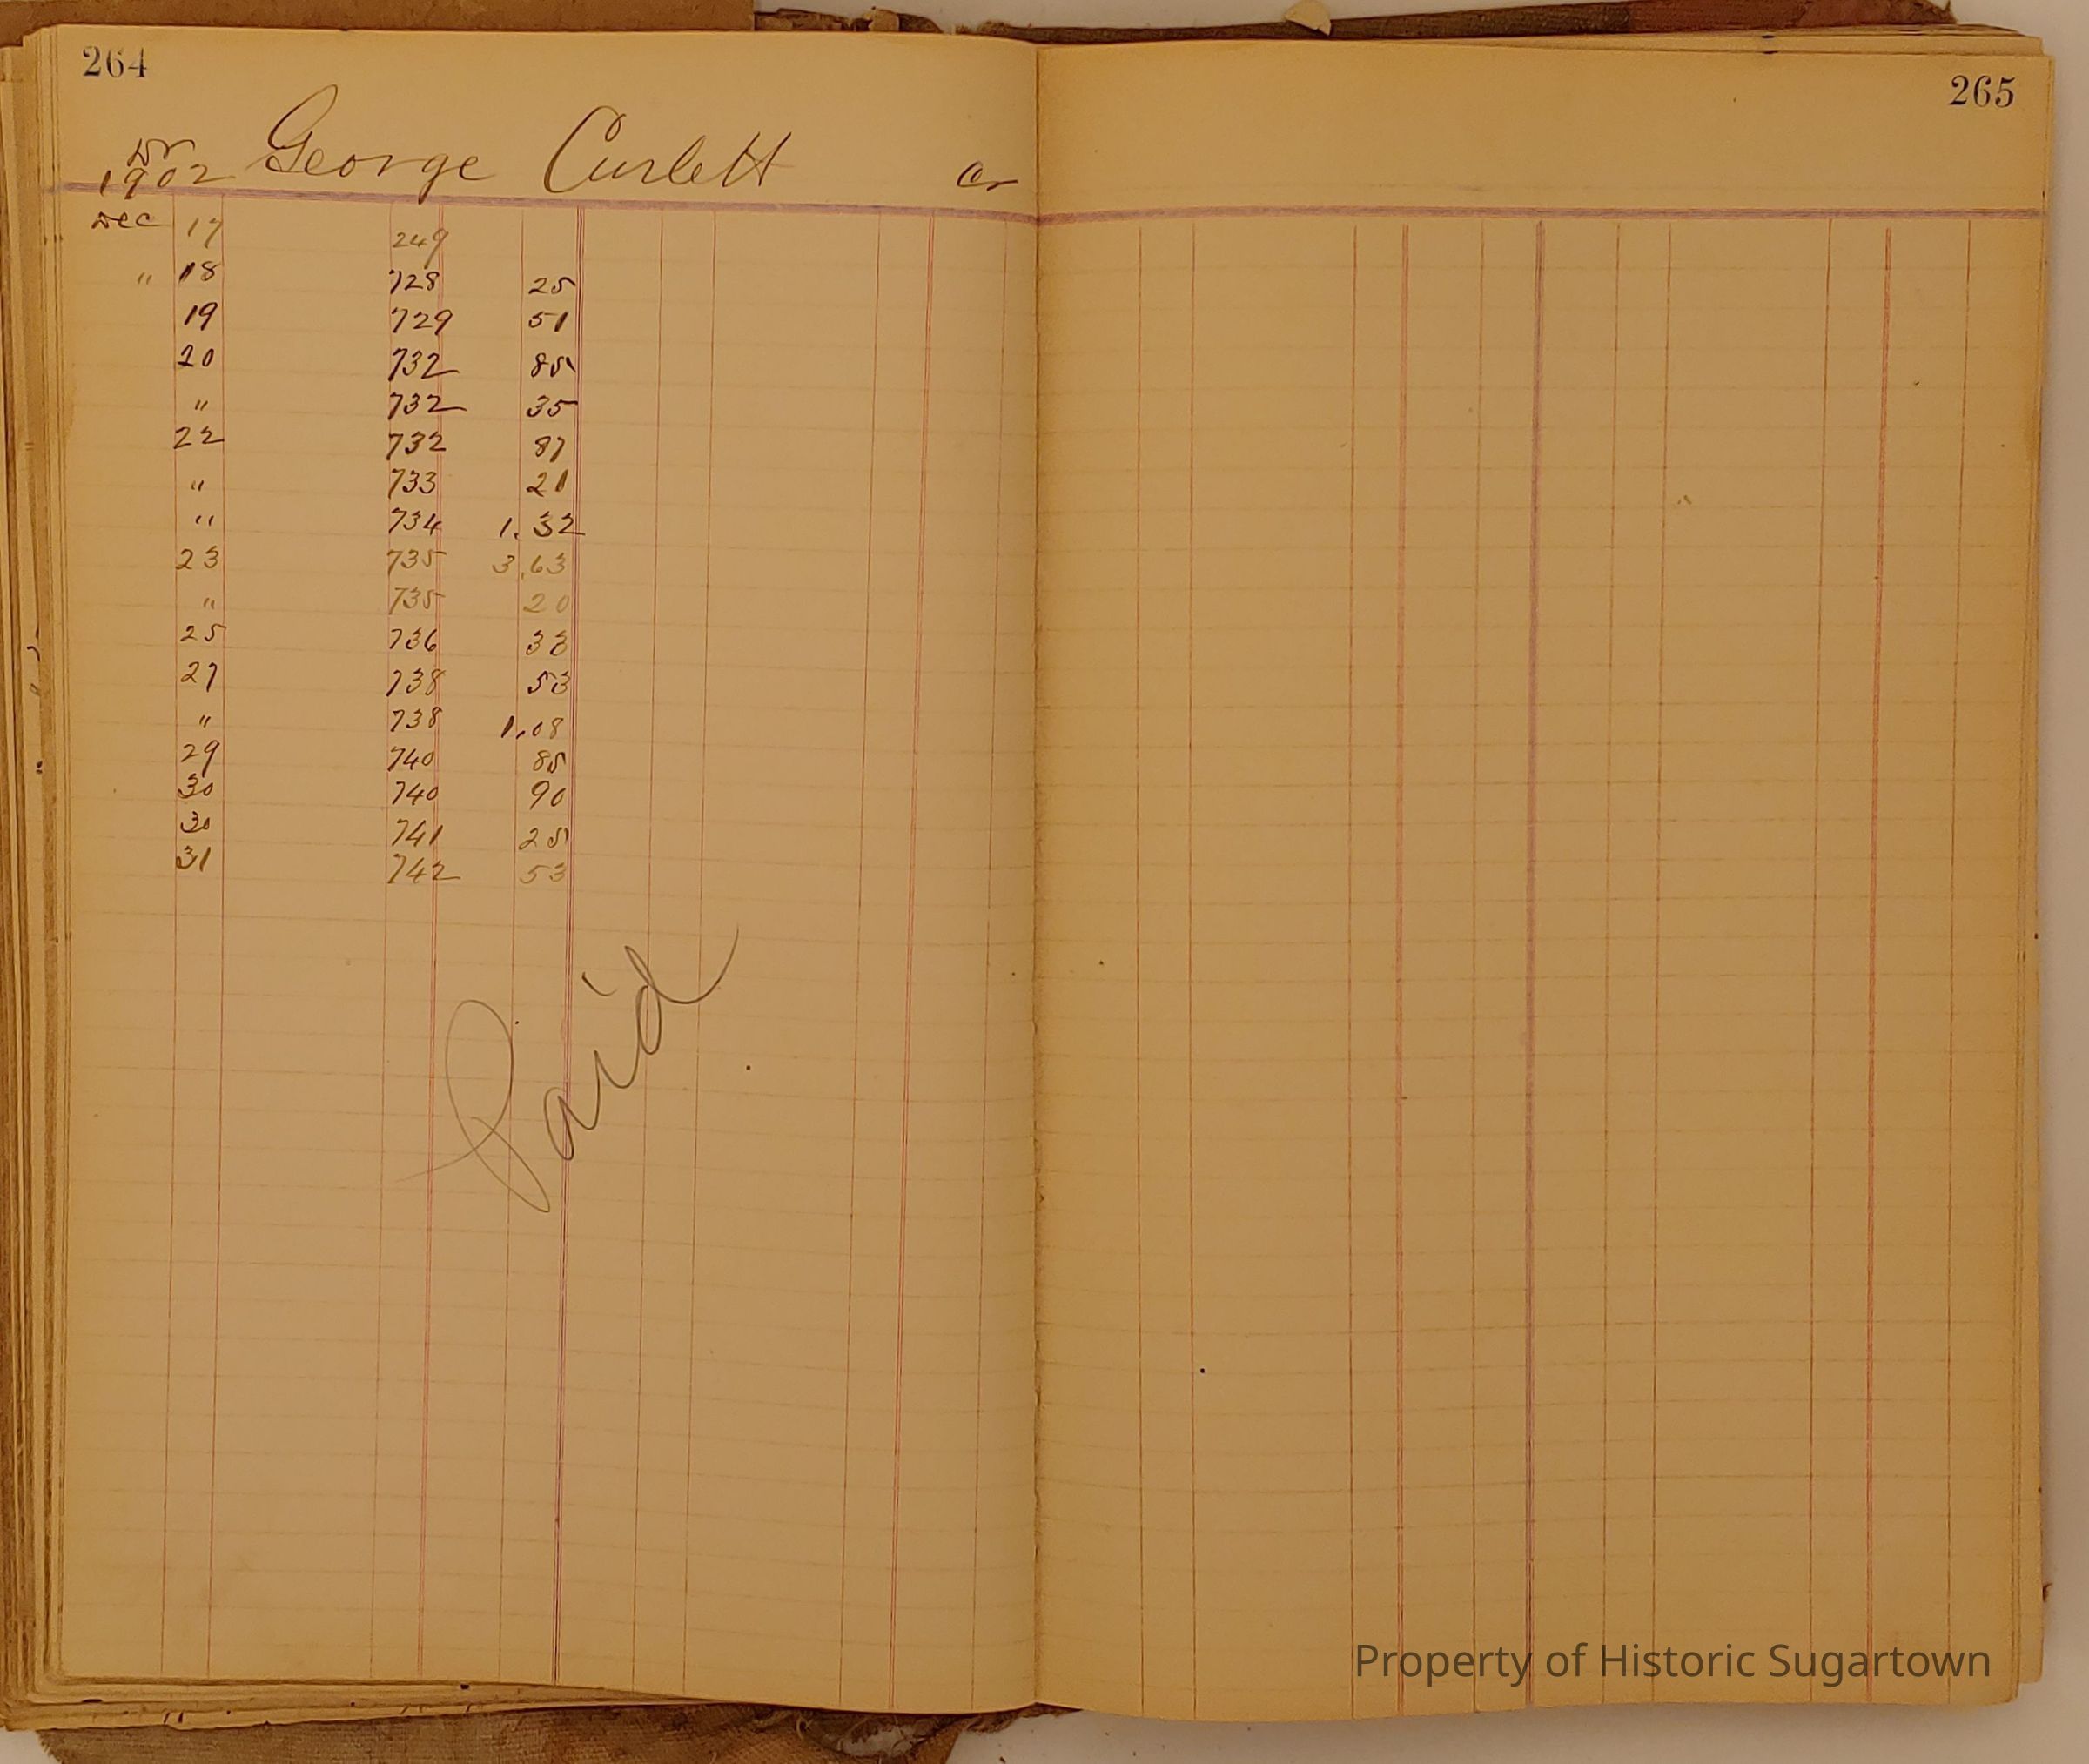 264
265
Dr
1902 George Curlett Cr
Dec 17 249
" 18 728 25
19 729 51
20 732 85
" 732 35
22 732 87
" 733 21
" 734 1.32
23 735 3.63
" 735 20
25 736 33
27 738 53
" 738 1.08
29 740 85
30 740 90
30 741 25
31 742 53
Paid
Property of Historic Sugartown